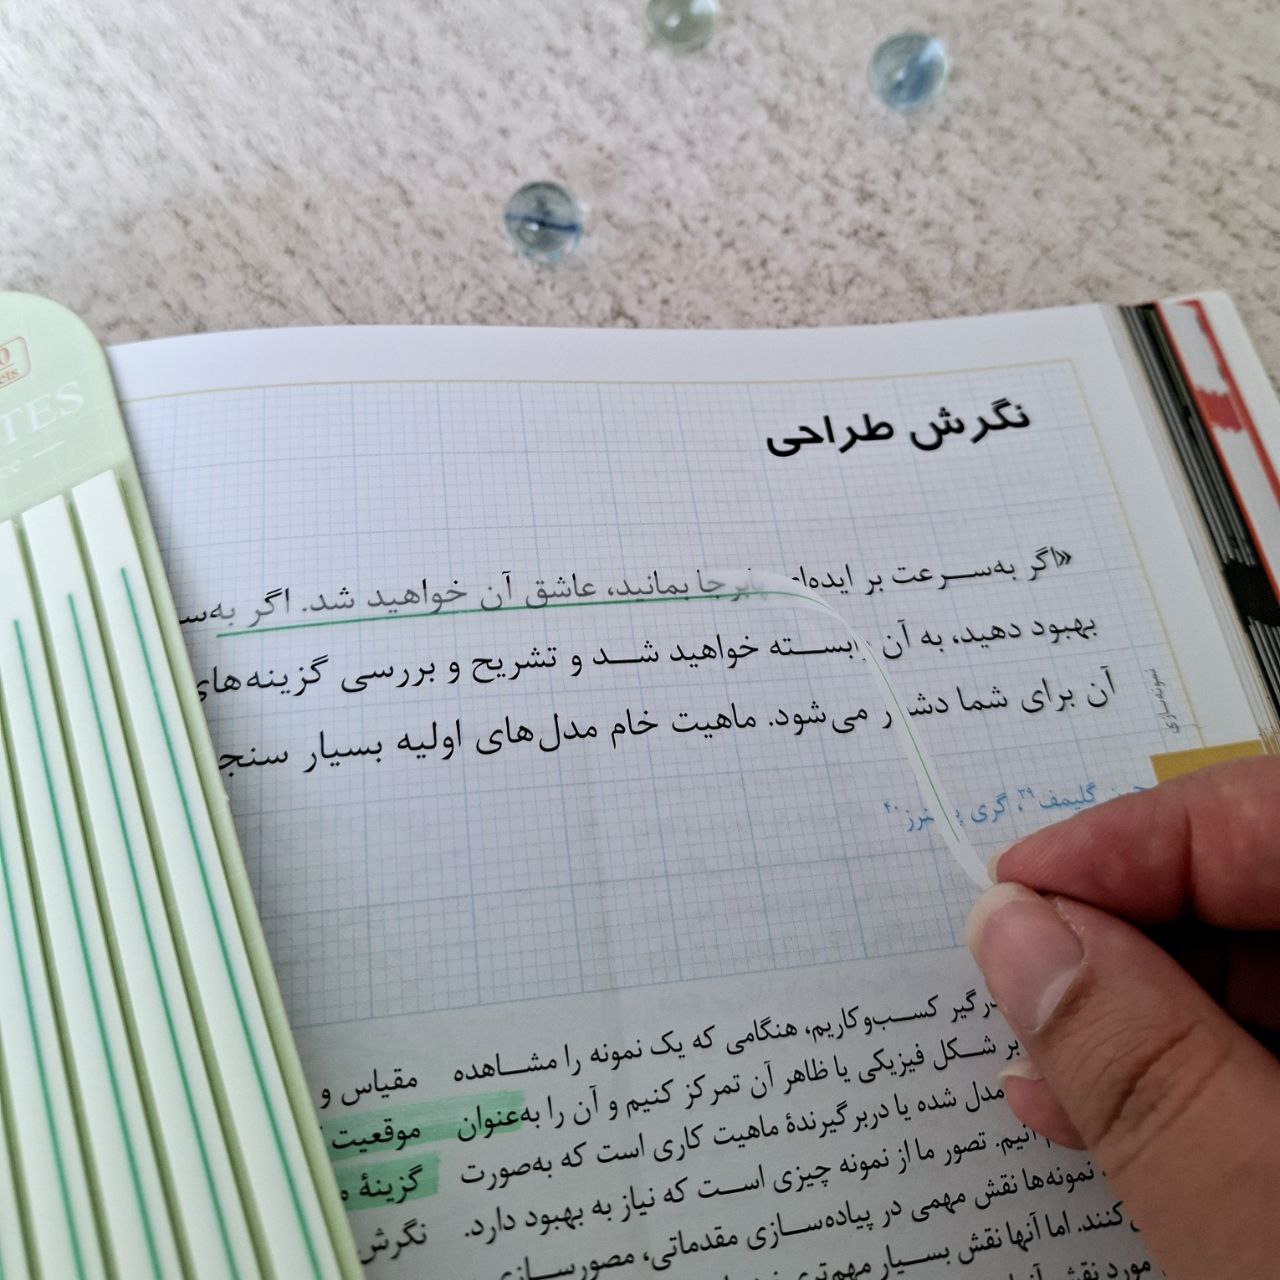 نگرش طراحی
«اگر به‌سرعت بر ایده‌ای پابرجا بمانید، عاشق آن خواهید شد. اگر به‌سـ
بهبود دهید، به آن وابسته خواهید شد و تشریح و بررسی گزینه‌های
آن برای شما دشوار می‌شود. ماهیت خام مدل‌های اولیه بسیار سنجـ
گلیمف۳۹، گری
نمونه‌سازی
درگیر کسب‌وکاریم، هنگامی که یک نمونه را مشاهده
بر شکل فیزیکی یا ظاهر آن تمرکز کنیم و آن را به‌عنوان
مدل شده یا دربرگیرندهٔ ماهیت کاری است که به‌صورت
تصور ما از نمونه چیزی است که نیاز به بهبود دارد.
نمونه‌ها نقش مهمی در پیاده‌سازی مقدماتی، مصورسازی
کنند. اما آنها نقش بسیار مهم‌تری
مقیاس و
موقعیت
گزینهٔ
نگرش
TES